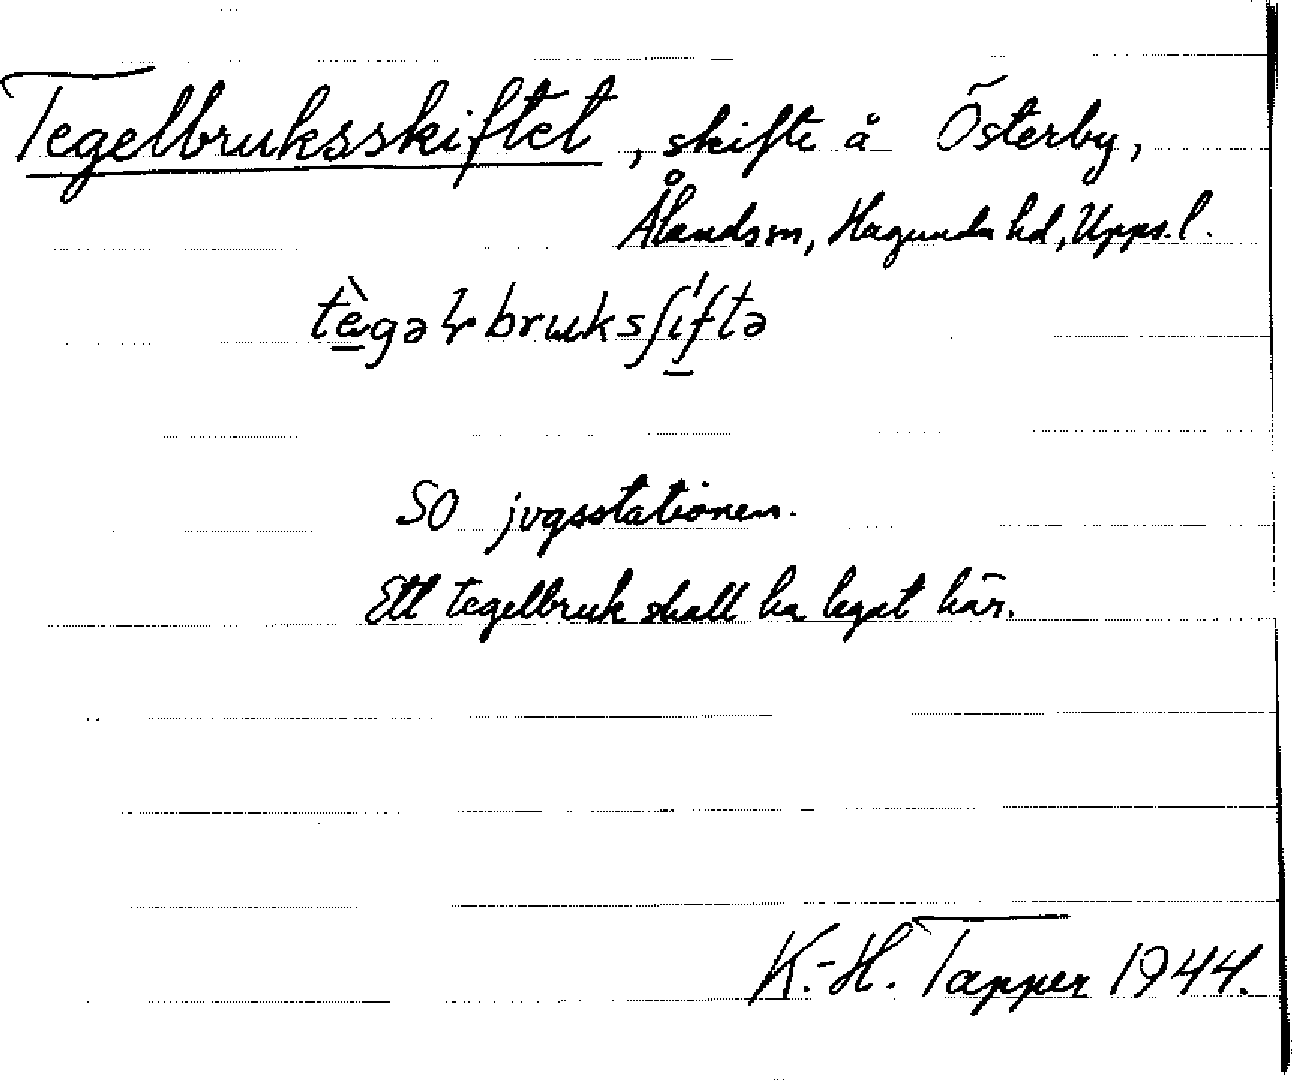 Tegelbruksskiftet, skifte å Österby,
Ålands sn, Hagunda hd, Upps. l.
tègəɭbruksʃíftə
SO jvgsstationen.
Ett tegelbruk skall ha legat här.
K.-H. Tapper 1944.